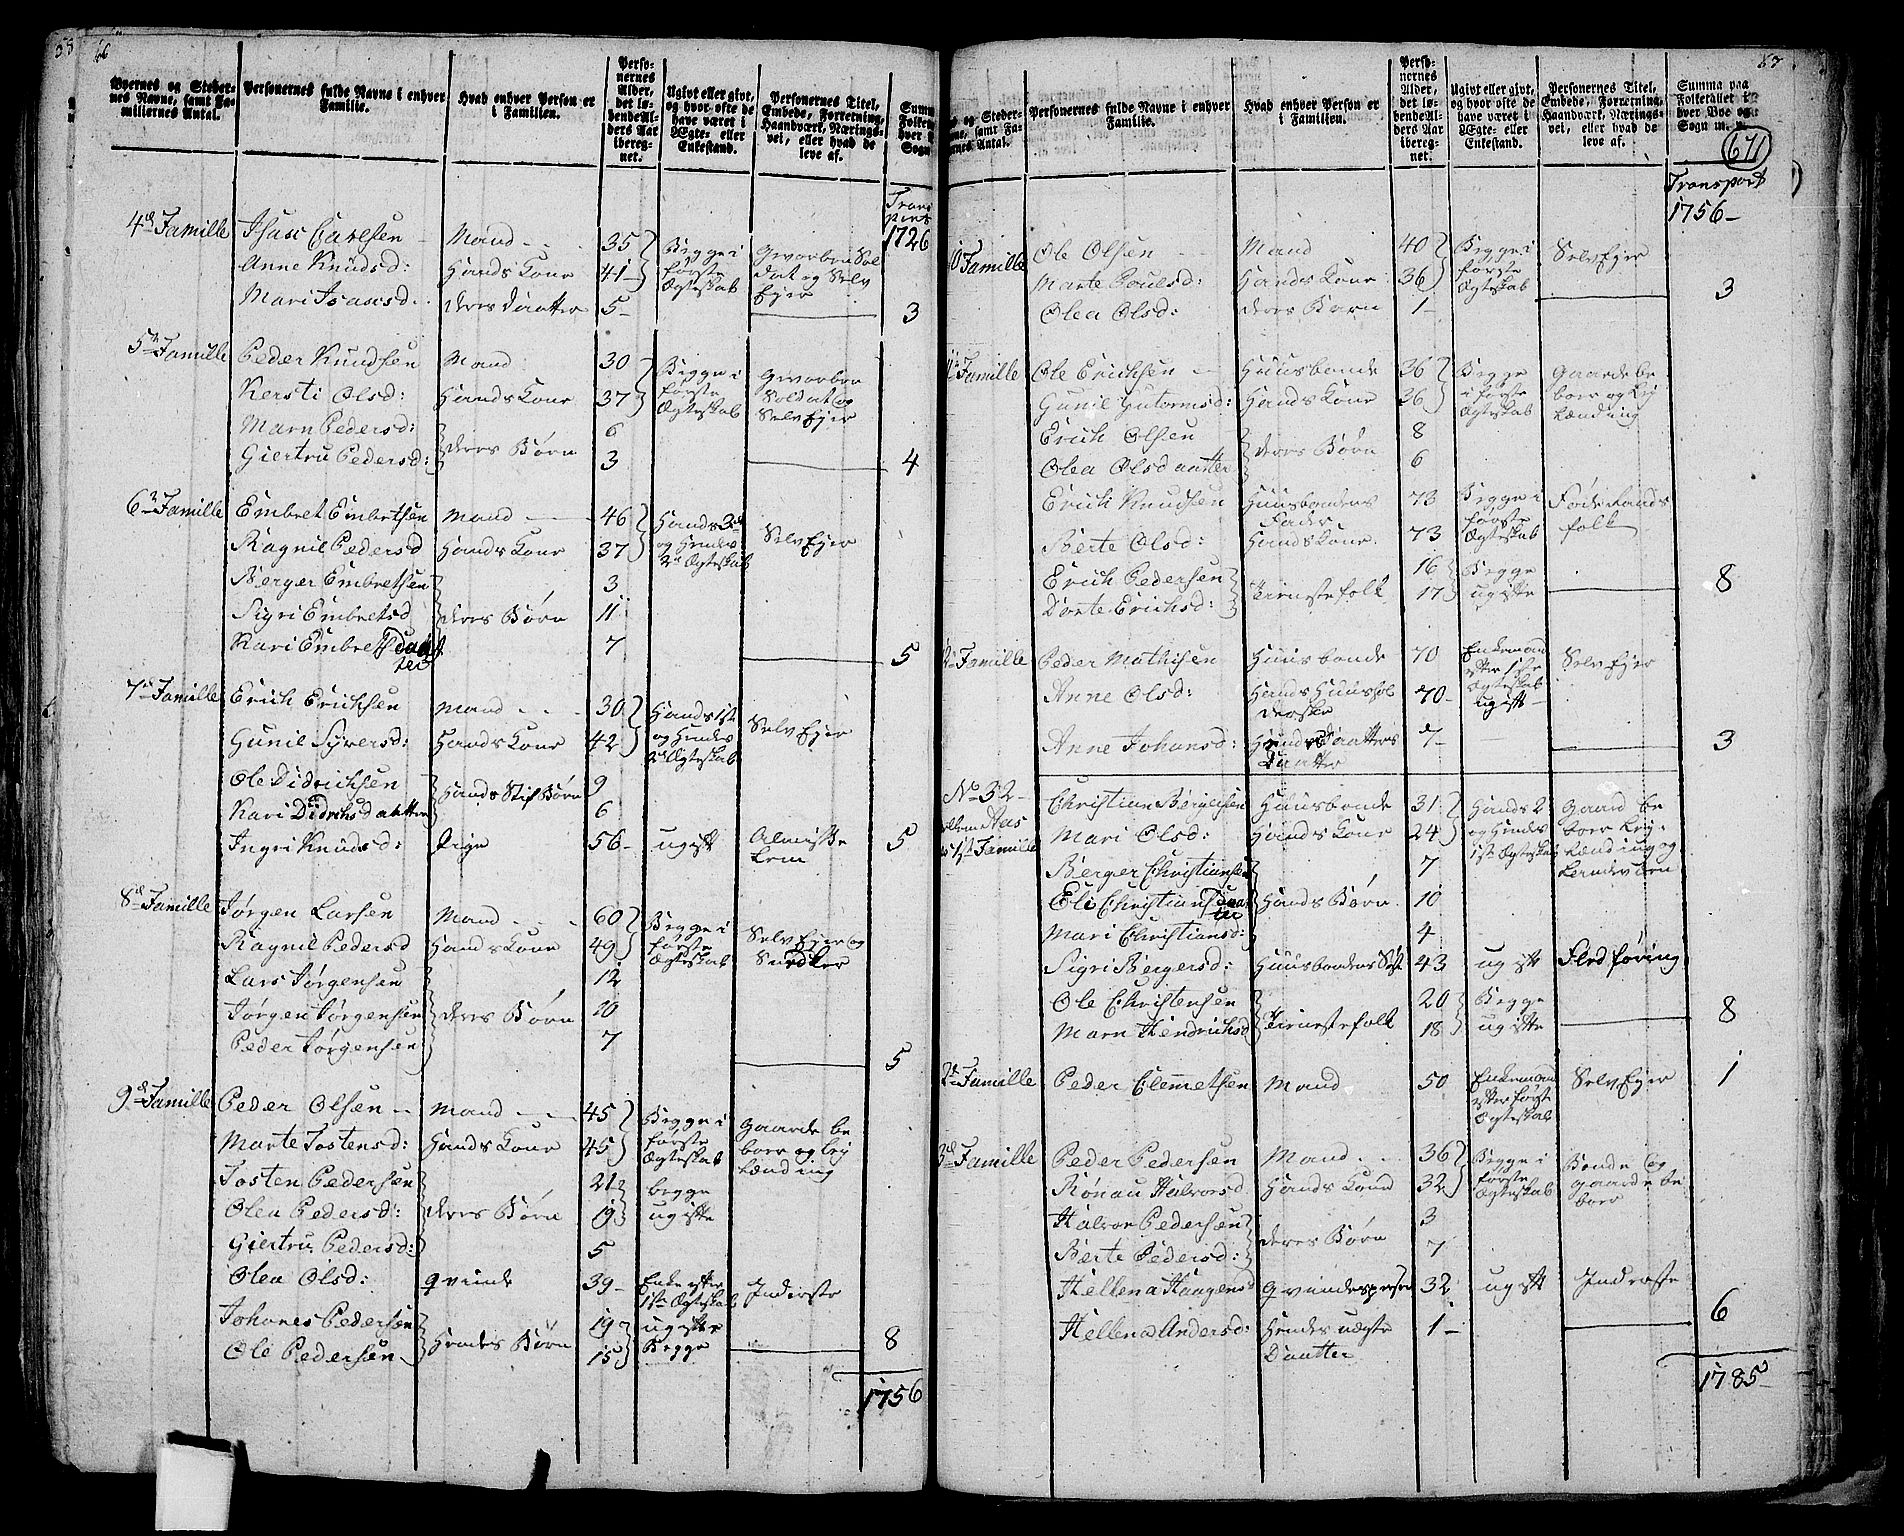 66
Byernes og Steder-
nes Navne, samt Fa-
miliernes Antal.
Personernes fulde Navne i enhver
Familie.
Hvad enhver Person er
i Familien.
Perso-
nernes
Alder,
det lø-
bende Al-
ders Aar
ibereg-
net.
Ugivt eller givt,
og hvor ofte de
have været i
Ægte- eller
Enkestand.
Personernes Titel,
Embede, Forretning,
Haandværk, Nærings-
vei, eller hvad de
leve af.
Transport 1726
4de Familie Isac Carlsen Mand 35 Begge i første Ægteskab Gevorben Soldat og Selv Ejer
Anne Knudsd: Hands Kone 41
Mari Isacsd. deres Daatter 5 3
5te Familie Peder Knudsen Mand 30 Begge i første Ægteskab Gevorben Soldat og Selv Ejer
Kersti Olsd: Hands Kone 37
Marn Pedersd: deres Børn 6
Giertru Pedersd: 3 4
6te Familie Embret Embretsen Mand 46 Hands 3de og Hendes 2det Ægteskab Selv Ejer
Ragnil Pedersd Hands Kone 37
Berger Embretsen 3
Sigri Embretsd deres Børn 11
Kari Embretsdaatter 7 5
7de Familie Erich Erichsen Mand 30 Hands 1ste og Hendes 2det Ægteskab Selv Ejer
Gunil Syversd: Hands Kone 42
Ole Didrichsen Hands Stif Børn 9
Kari Didrichsdaatter 6
Ingri Knudsd: Pige 56 ugift Almisse Lem 5
8de Familie Jørgen Larsen Mand 60 Begge i første Ægteskab Selv Ejer og Snedker
Ragnil Pedersd Hands Kone 49
Lars Jørgensen 12
Jørgen Jørgensen deres Børn 10
Peder Jørgensen 7 5
9de Familie Peder Olsen Mand 45 Begge i første Ægteskab Gaardbeboer og Leylænding
Marte Jostensd: Hands Kone 45
Josten Pedersen 21 begge ugifte
Olea Pedersd: deres Børn 19
Giertru Pedersd: 5
Olea Olsd: qvinde 39 Enke efter 1ste Ægteskab Inderste
Johanes Pedersen Hendes Børn 19 ugifte Begge
Ole Pedersen 15 8
1756
67
671
Personernes fulde Navne i enhver
Familie.
Hvad enhver Person er
i Familien.
Perso-
nernes
Alder,
det lø-
bende Al-
ders Aar
ibereg-
net.
Ugivt eller givt,
og hvor ofte de
have været i
Ægte- eller
Enkestand.
Personernes Titel,
Embede, Forretning,
Haandværk, Nærings-
vei, eller hvad de
leve af.
Summa paa
Folketallet i
hver Bye og
Sogn
Transport 1756
Familie Ole Olsen Mand 40 Begge i første Ægteskab Selv Ejer
Marte Poulsd: Hands Kone 36
Olea Olsd: deres Barn 1 3
Familie Ole Erichsen Huusbonde 36 Begge i første Ægteskab Gaardbeboer og Leylænding
Gunil Gutormsd: Hands Kone 26
Erich Olsen deres Børn 8
Olea Olsdaatter 6
Erich Knudsen Huusbondens Fader 73 Begge i første Ægteskab Føderaads folk
Berte Olsd: Hands Kone 73
Erich Pedersen Tienestefolk 16 Begge ugifte
Dorte Erichsd: 17 8
Familie Peder Mathisen Huusbonde 70 Enkemand efter 1ste Ægteskab Selv Ejer
Anne Olsd: Hands Huusholderske 70 ugift
Anne Johansd: Hands Daatters Daatter 7 3
No 32
Aas
1ste Familie Christian Bergersen Huusbonde 31 Hands 2 og Hendes 1ste Ægteskab Gaardbeboer Leylænding og Landeværn
Mari Olsd: Hands Kone 24
Berger Christiansen 7
Eli Christiansdaatter Hands Børn 10
Mari Christiansd: 4
Sigri Bergersd: Huusbondens Søst 43 ugift Fledføring
Ole Christensen Tienestefolk 20 Begge ugifte
Marn Hendrichsd 18 8
2de Familie Peder Clemmetsen Mand 50 Enkemand efter først Ægteskab Selv Ejer 1
3de Familie Peder Pedersen Mand 36 Begge i første Ægteskab Bonde og gaardbeboer
Rønau Halvorsd Hands Kone 32
Halvor Pedersen deres Børn 3
Berte Pedersd: 7
Hellena Haagensd Qvindesperson 32 ugift Inderste
Hellena Andersd: Hendes uægte Daatter 1 6
1785